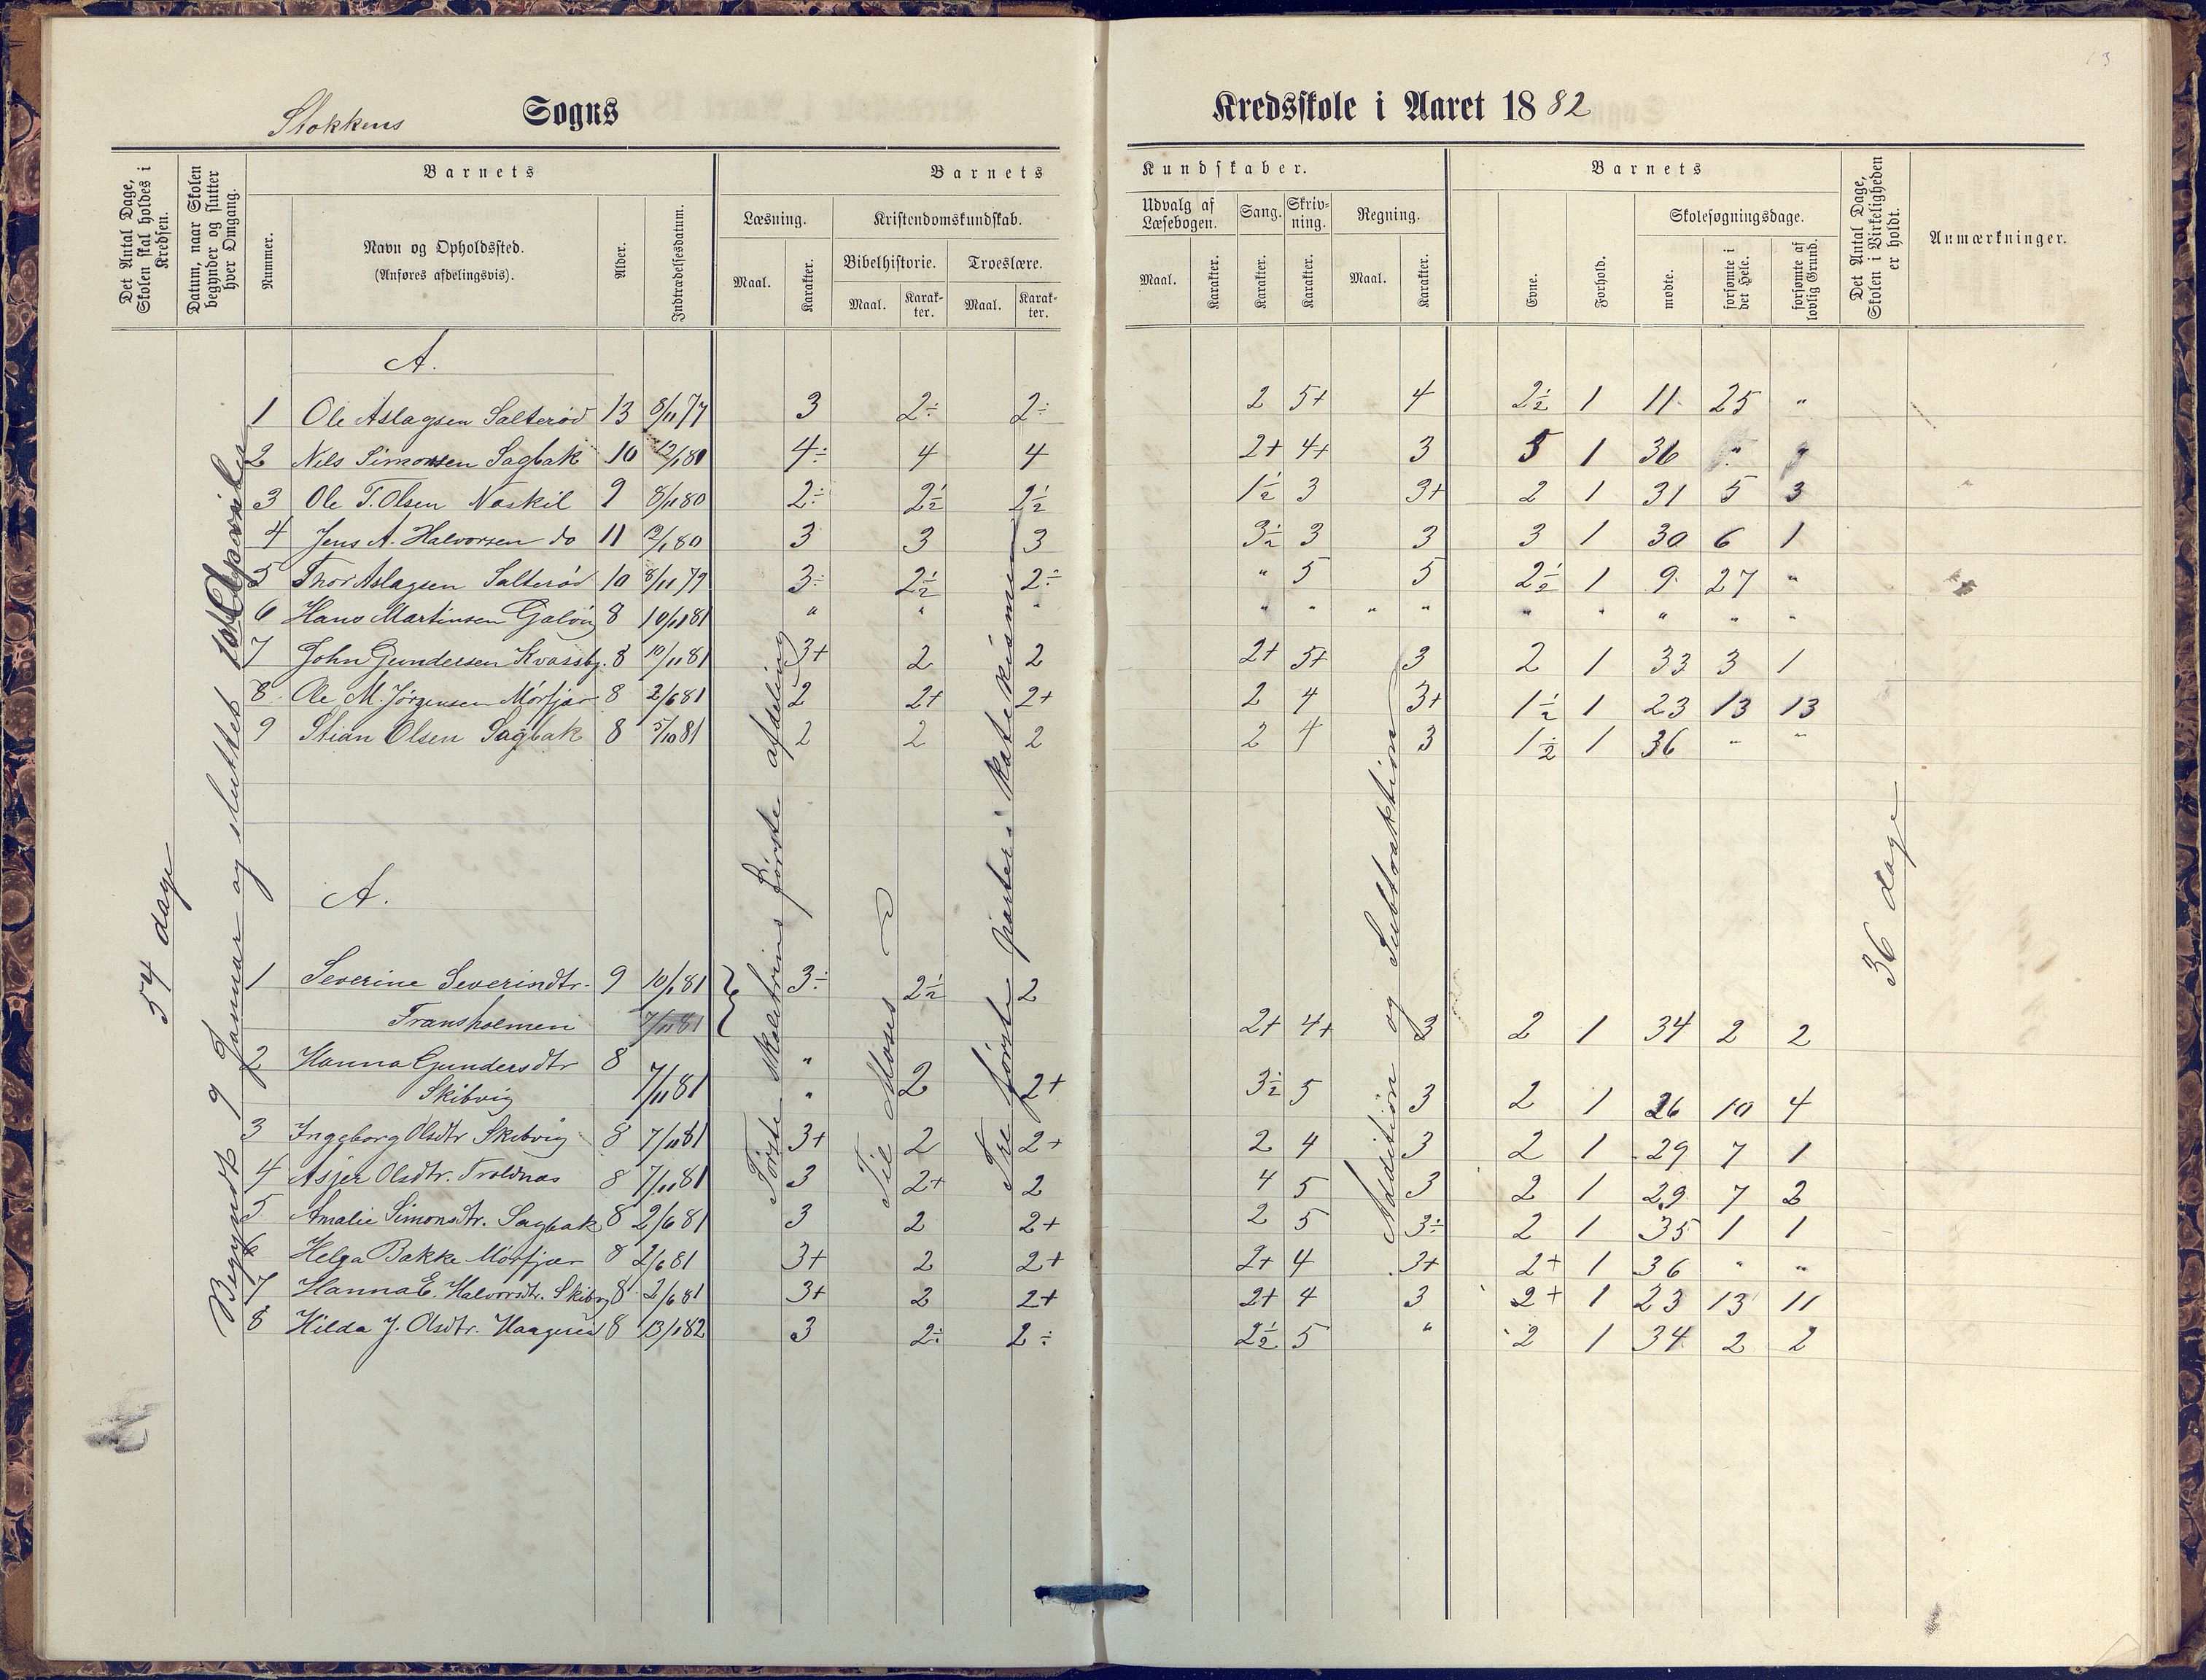 Stokkens Sogns Kredsskole i Aaret 1882
Det Antal Dage, Skolen skal holdes i Kredsen.
Datum, naar Skolen begynder og slutter hver Omgang.
Barnets
Nummer.
Navn og Opholdssted.
(Anføres afdelingsvis).
Alder.
Indtrædelsesdatum.
Barnets Kundskaber.
Læsning.
Maal. Karakter.
Kristendomskundskab.
Bibelhistorie. Troeslære.
Maal. Karakter. Maal. Karakter.
Udvalg af Læsebogen.
Maal. Karakter.
Sang. Karakter.
Skrivning. Karakter.
Regning.
Maal. Karakter.
Barnets
Evne. Forhold.
Skolesøgningsdage.
mødte. forsømte i det Hele. forsømte af lovlig Grund.
Det Antal Dage, Skolen i Virkeligheden er holdt.
Anmærkninger.
54 dage
Begyndt 9 Januar og sluttet
Første skoletrins første afdeling
Til Moses
Tre første parter i katekismen
Addition og Subtraktion
36 dage
A.
1 Ole Aslagsen Salterød 13 8/11 77 3 2÷ 2÷ 2 5+ 4 2½ 1 11 25 "
2 Nils Simonsen Sagbak 10 12/1 80 4÷ 4 4 2+ 4+ 3 5 1 36 "
3 Ole T. Olsen Naskil 9 8/11 80 2÷ 2½ 2½ 1½ 3 3+ 2 1 31 5 3
4 Jens A. Halvorsen do 11 12/1 80 3 3 3 3½ 3 3 3 1 30 6 1
5 Thor Aslagsen Salterød 10 8/11 79 3÷ 2½ 2÷ " 5 5 2½ 1 9 27 "
6 Hans Martinsen Gjalvig 8 10/11 81 " " " " " " " " " " " "
7 John Gundersen Kvassby. 8 10/11 81 3+ 2 2 2+ 5+ 3 2 1 33 3 1
8 Ole M. Jørgensen Mørfjær 8 2/6 81 2 2+ 2+ 2 4 3+ 1½ 1 23 13 13
9 Stian Olsen Sagbak 8 5/10 81 2 2 2 2 4 3 1½ 1 36 " "
A.
1 Severine Severindtr. 9 10/1 81 3÷ 2½ 2
Fransholmen 7/11 81 2+ 4+ 3 2 1 34 2 2
2 Hanna Gundersdtr 8 "
Skibvig 7/11 81 " 2 2+ 3½ 5 3 2 1 26 10 4
3 Ingeborg Olsdtr Skibvig 8 7/11 81 3+ 2 2+ 2 4 3 2 1 29 7 1
4 Asjer Olsdtr. Troldnæs 8 7/11 81 3 2+ 2 4 5 3 2 1 29 7 2
5 Amalie Simonsdtr. Sagbak 8 2/6 81 3 2 2+ 2 5 3÷ 2 1 35 1 1
6 Helga Bakke Mørfjær 8 2/6 81 3+ 2 2+ 2+ 4 3+ 2+ 1 36 " "
7 Hanna E. Halvorsdtr. Skibvig 8 2/6 81 3+ 2 2+ 2+ 4 3 2+ 1 23 13 11
8 Hilda J. Olsdtr. 8 13/1 82 3 2÷ 2÷ 2½ 5 " 2 1 34 2 2